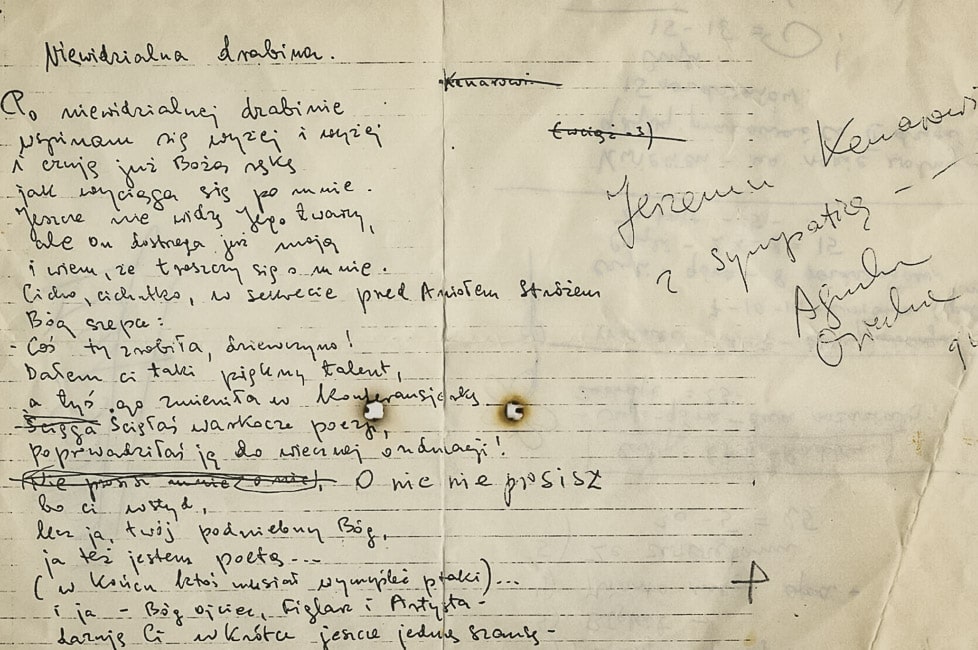 Niewidzialna drabina.
Kenarowi
(wciąż 
Po niewidzialnej drabinie
wspinam się wyżej i wyżej
i czuję już Bożą rękę
jak wyciąga się po mnie.
Jeszcze nie widzę Jego twarzy,
ale On dostrega już moją
i wiem, że troszczy się o mnie.
Cicho, cichutko, w sekrecie przed Aniołem Stróżem
Bóg szepce:
- Coś ty zrobiła, dziewczyno!
Dałem ci taki piękny talent,
a tyś go zmieniła w Konferansjerkę
Ścięga Ścięłaś warkocze poezji,
poprowadziłaś ją do wiecznej ondulacji!
Nie prosisz mnie o nic, O nic nie prosisz
bo ci wstyd,
lecz ja, twój podniebny Bóg,
ja też jestem poetą...
(w końcu ktoś musiał wymyśleć ptaki)...
i ja - Bóg ojciec, Figlarz i Artysta -
daruję Ci wkrótce jeszcze jedną szansę -
Jeremi Kenarowi
z sympatią --
Agnieszka
Osiecka